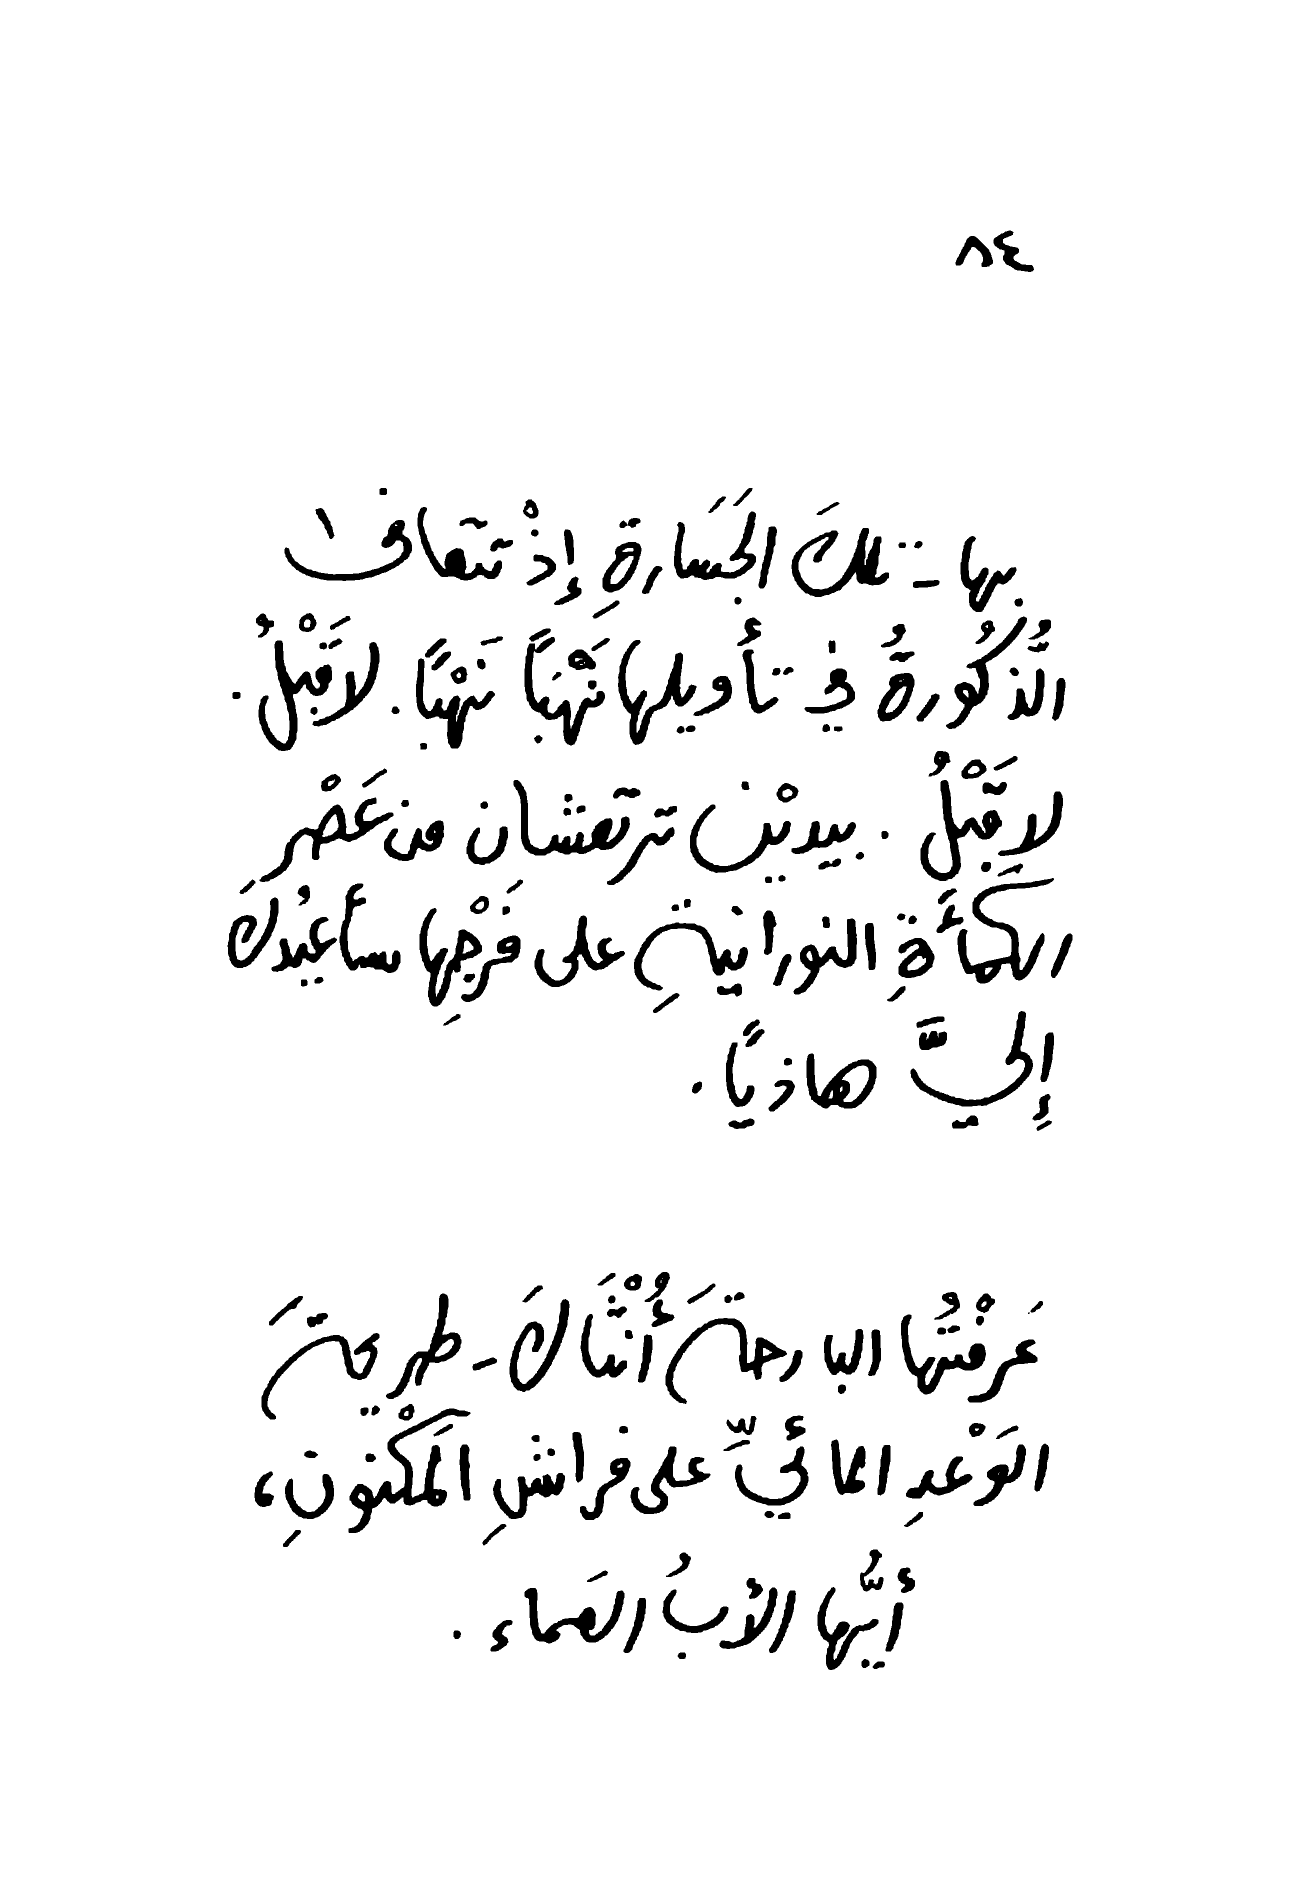 ٨٤
بها - تلكَ الجَسَارةِ إِذْ تتعافىٰ
الذُّكُورةُ في تأويلها نَهْبًا نَهْبًا. لا قَبْلُ.
لا قَبْلُ. بيديْن ترتعشان من عَصْرِ
الكمأَةِ النورانيةِ على فَرْجِها سأعيُدكَ
إِليَّ هاذيًا.
عَرفْتُها البارحةَ أُنْثَاكَ - طريحةَ
الوَعْدِ المائيِّ على فراشِ المَكْنونِ،
أيُّها الأبُ الصَماء.